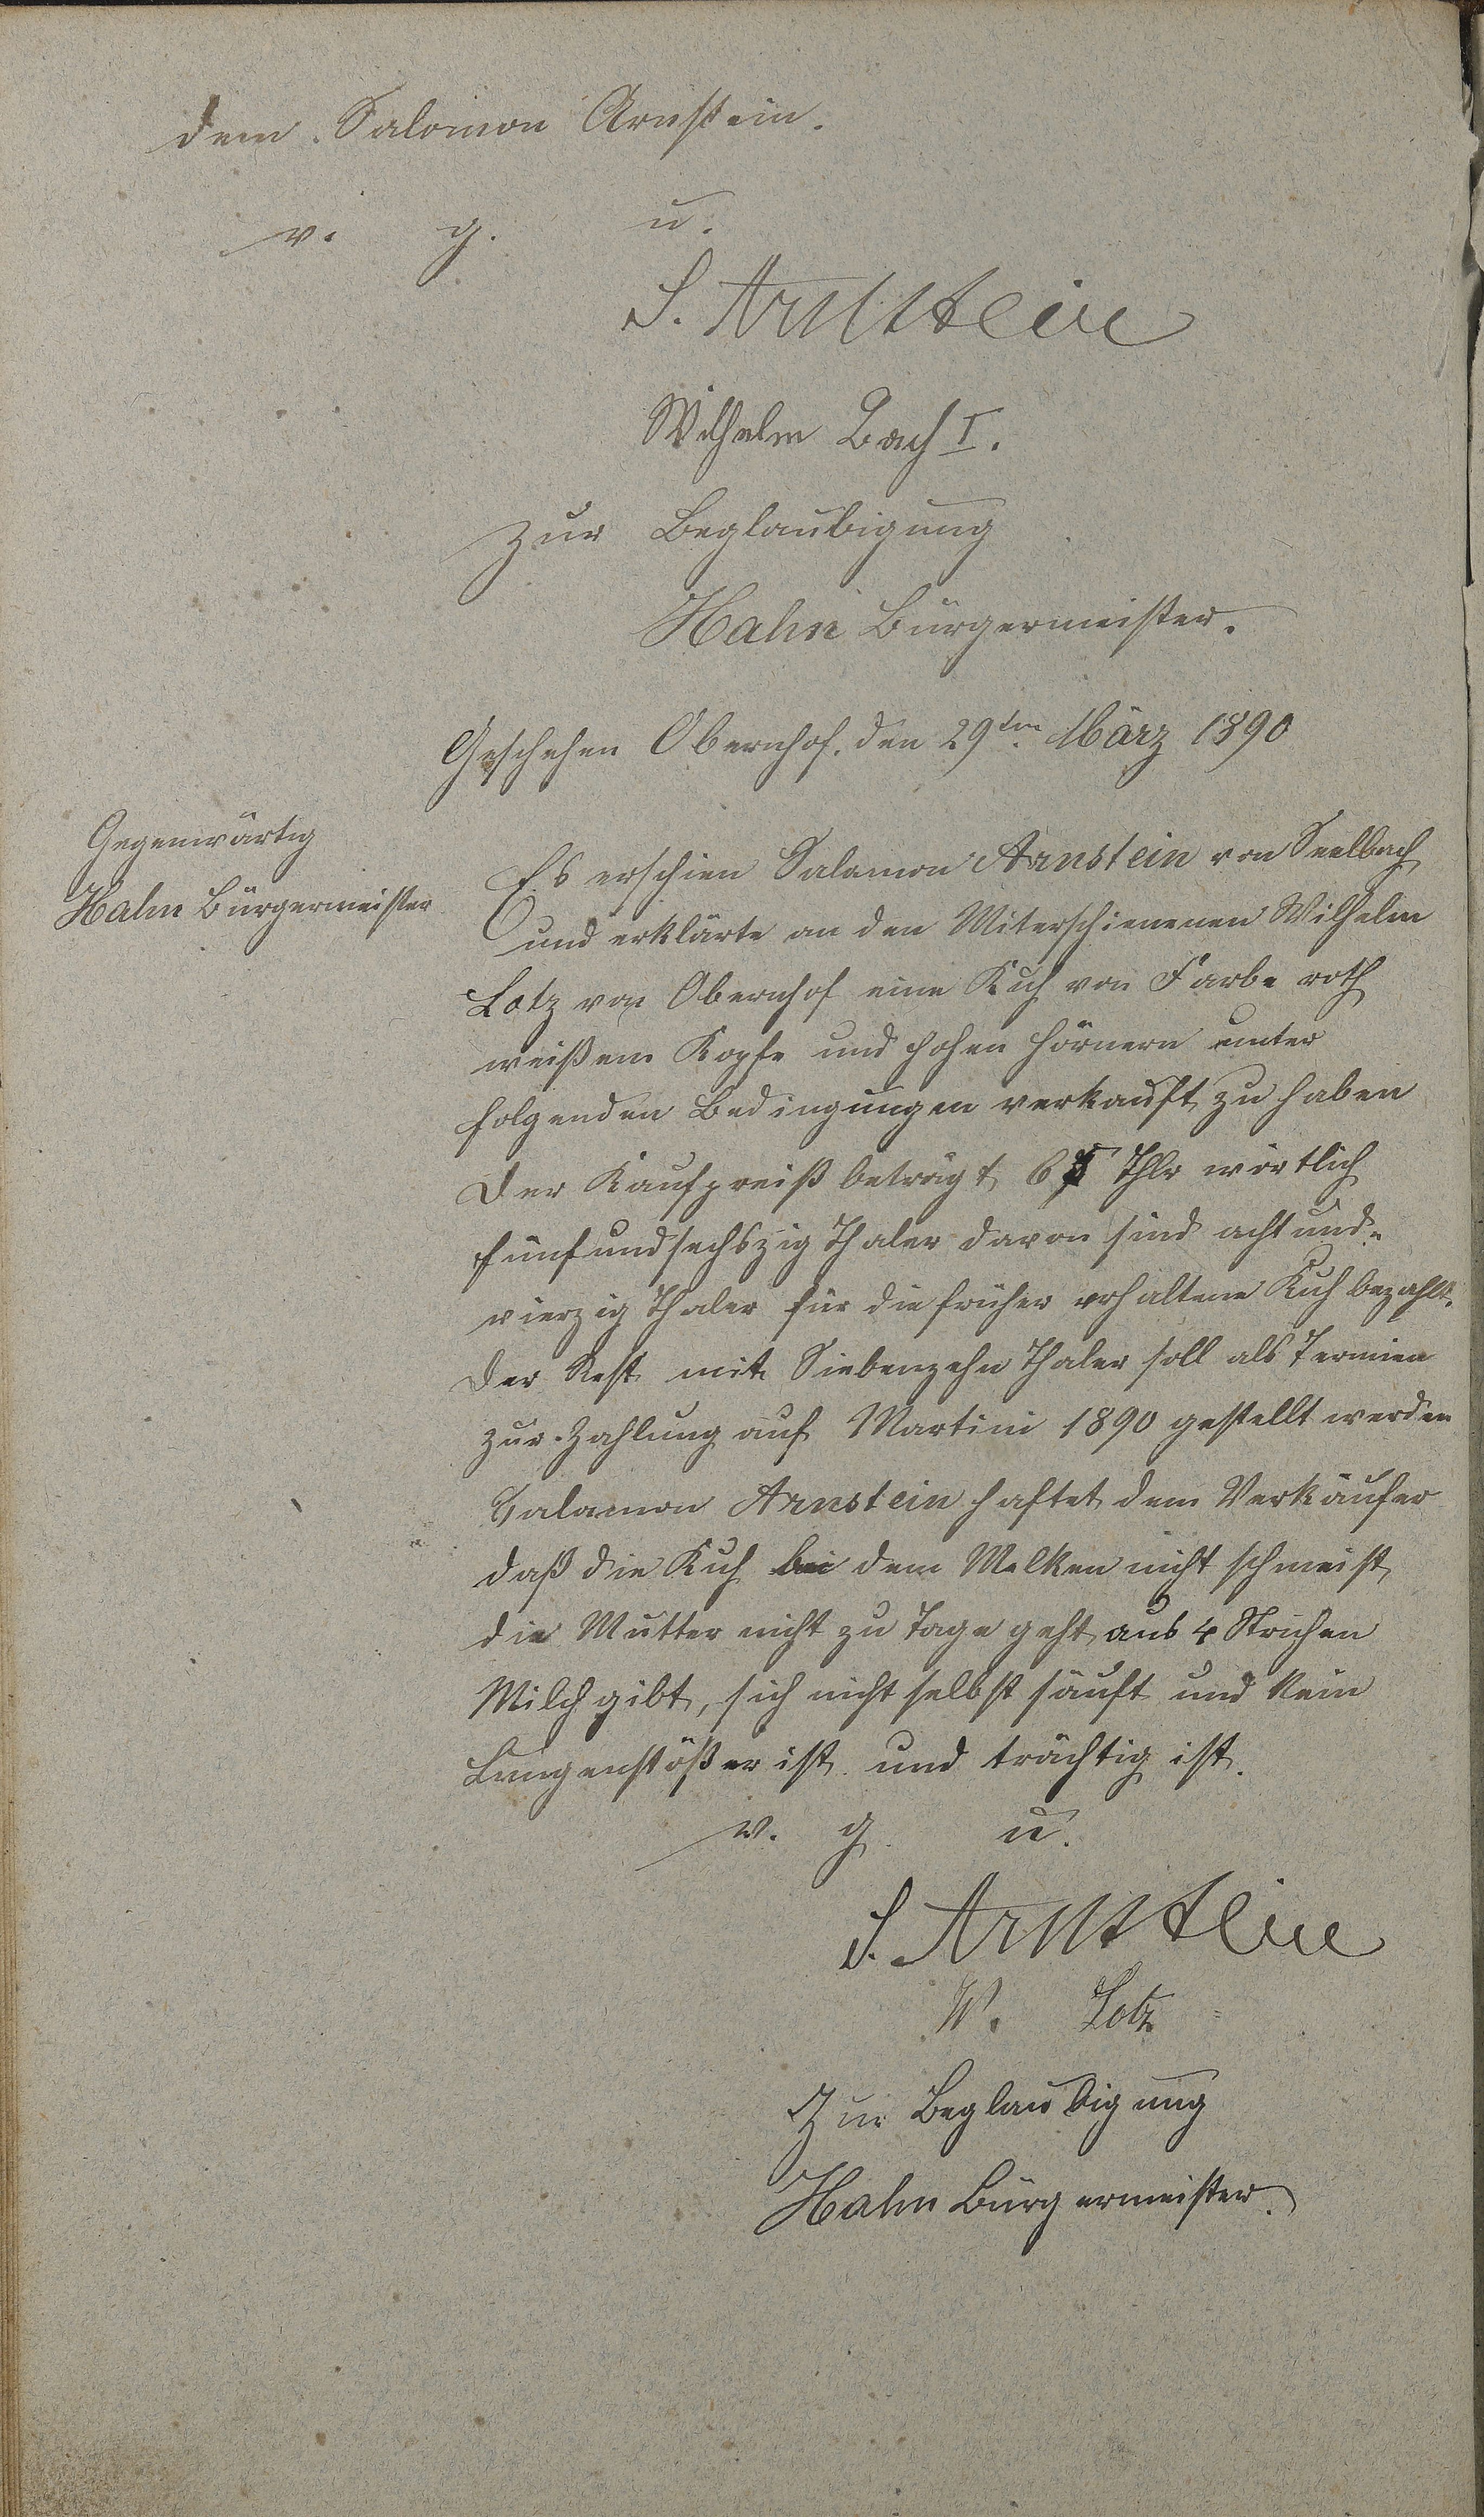 dem Salomon Arnstein.
v. g. u.
S. Arnstein
Wilhelm Bach I.
Zur Beglaubigung
Hahn Bürgermeister.
Geschehen Obernhof, den 29ten März 1890
Gegenwärtig
Hahn Bürgermeister
Es erschien Salamon Arnstein von Seelbach
und erklärte an den Miterschienenen Wilhelm
Lotz von Obernhof eine Kuh von Farbe roth
weißem Kopfe und hohen Hörnern unter
folgenden Bedingungen verkauft zu haben
Der Kaufpreiß beträgt 65 Thlr wörtlich
fünfundsechszig Thaler davon sind achtund-
vierzig Thaler für die früher erhaltene Kuh bezahlt.
Der Rest mit Siebenzehn Thaler soll als Termien
zur Zahlung auf Martini 1890 gestellt werden
Salamon Arnstein haftet dem Verkäufer
daß die Kuh bei dem Melken nicht schmeist,
die Mutter nicht zu Tage geht, aus 4 Strichen
Milch gibt, sich nicht selbst säuft und kein
Lungenstößer ist und trächtig ist.
v. g. u.
S. Arnstein
W. Lotz
Zur Beglaubigung
Hahn Bürgermeister.